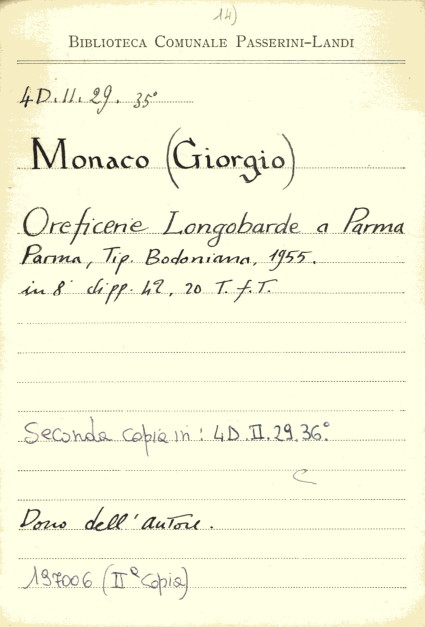 14)
BIBLIOTECA COMUNALE PASSERINI-LANDI
4D.II.29. 35°
Monaco (Giorgio)
Oreficerie Longobarde a Parma
Parma, Tip. Bodoniana, 1955.
in 8° di pp. 42, 20 T. f. T.
Seconda copia in: 4D.II.29.36°.
Dono dell'autore.
197006 (IIª copia)